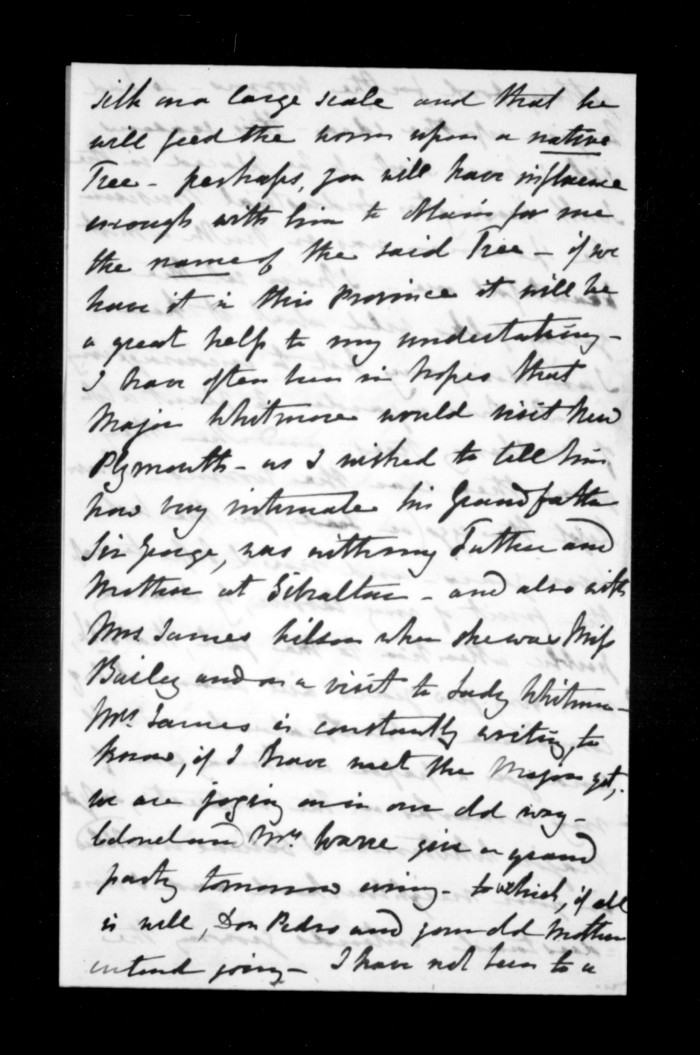 silk on a large scale and that he
will feed the worm upon a native
Tree - perhaps, you will have influence
enough with him to obtain for me
the name of the said Tree - if we
have it in this Province it will be
a great help to my undertaking -
I have often been in hopes that
Major Whitmore would visit New
Plymouth - as I wished to tell him
how very intimate his Grandfather
Sir George, was with my Father and
Mother at Gibraltar - and also with
Mrs James Wilson when she was Miss
Bailey and on a visit to Lady Whitmore -
Mrs. James is constantly writing, to
know, if I have met the Major yet,
we are joging on in our old way -
Colonel and Mrs Warre give a grand
party tomorrow evening - to which, if all
is well, Don Pedro and your old Mother
intend going - I have not been to a